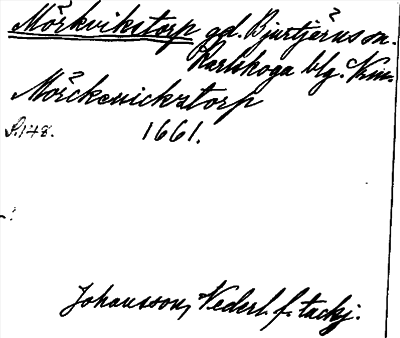 Mörkvikstorp gd. Bjurtjärns sn.
Karlskoga blg. Krim.
Mörckewickztorp
S.148. 1661.
Johansson, Nederl. f. tackj.